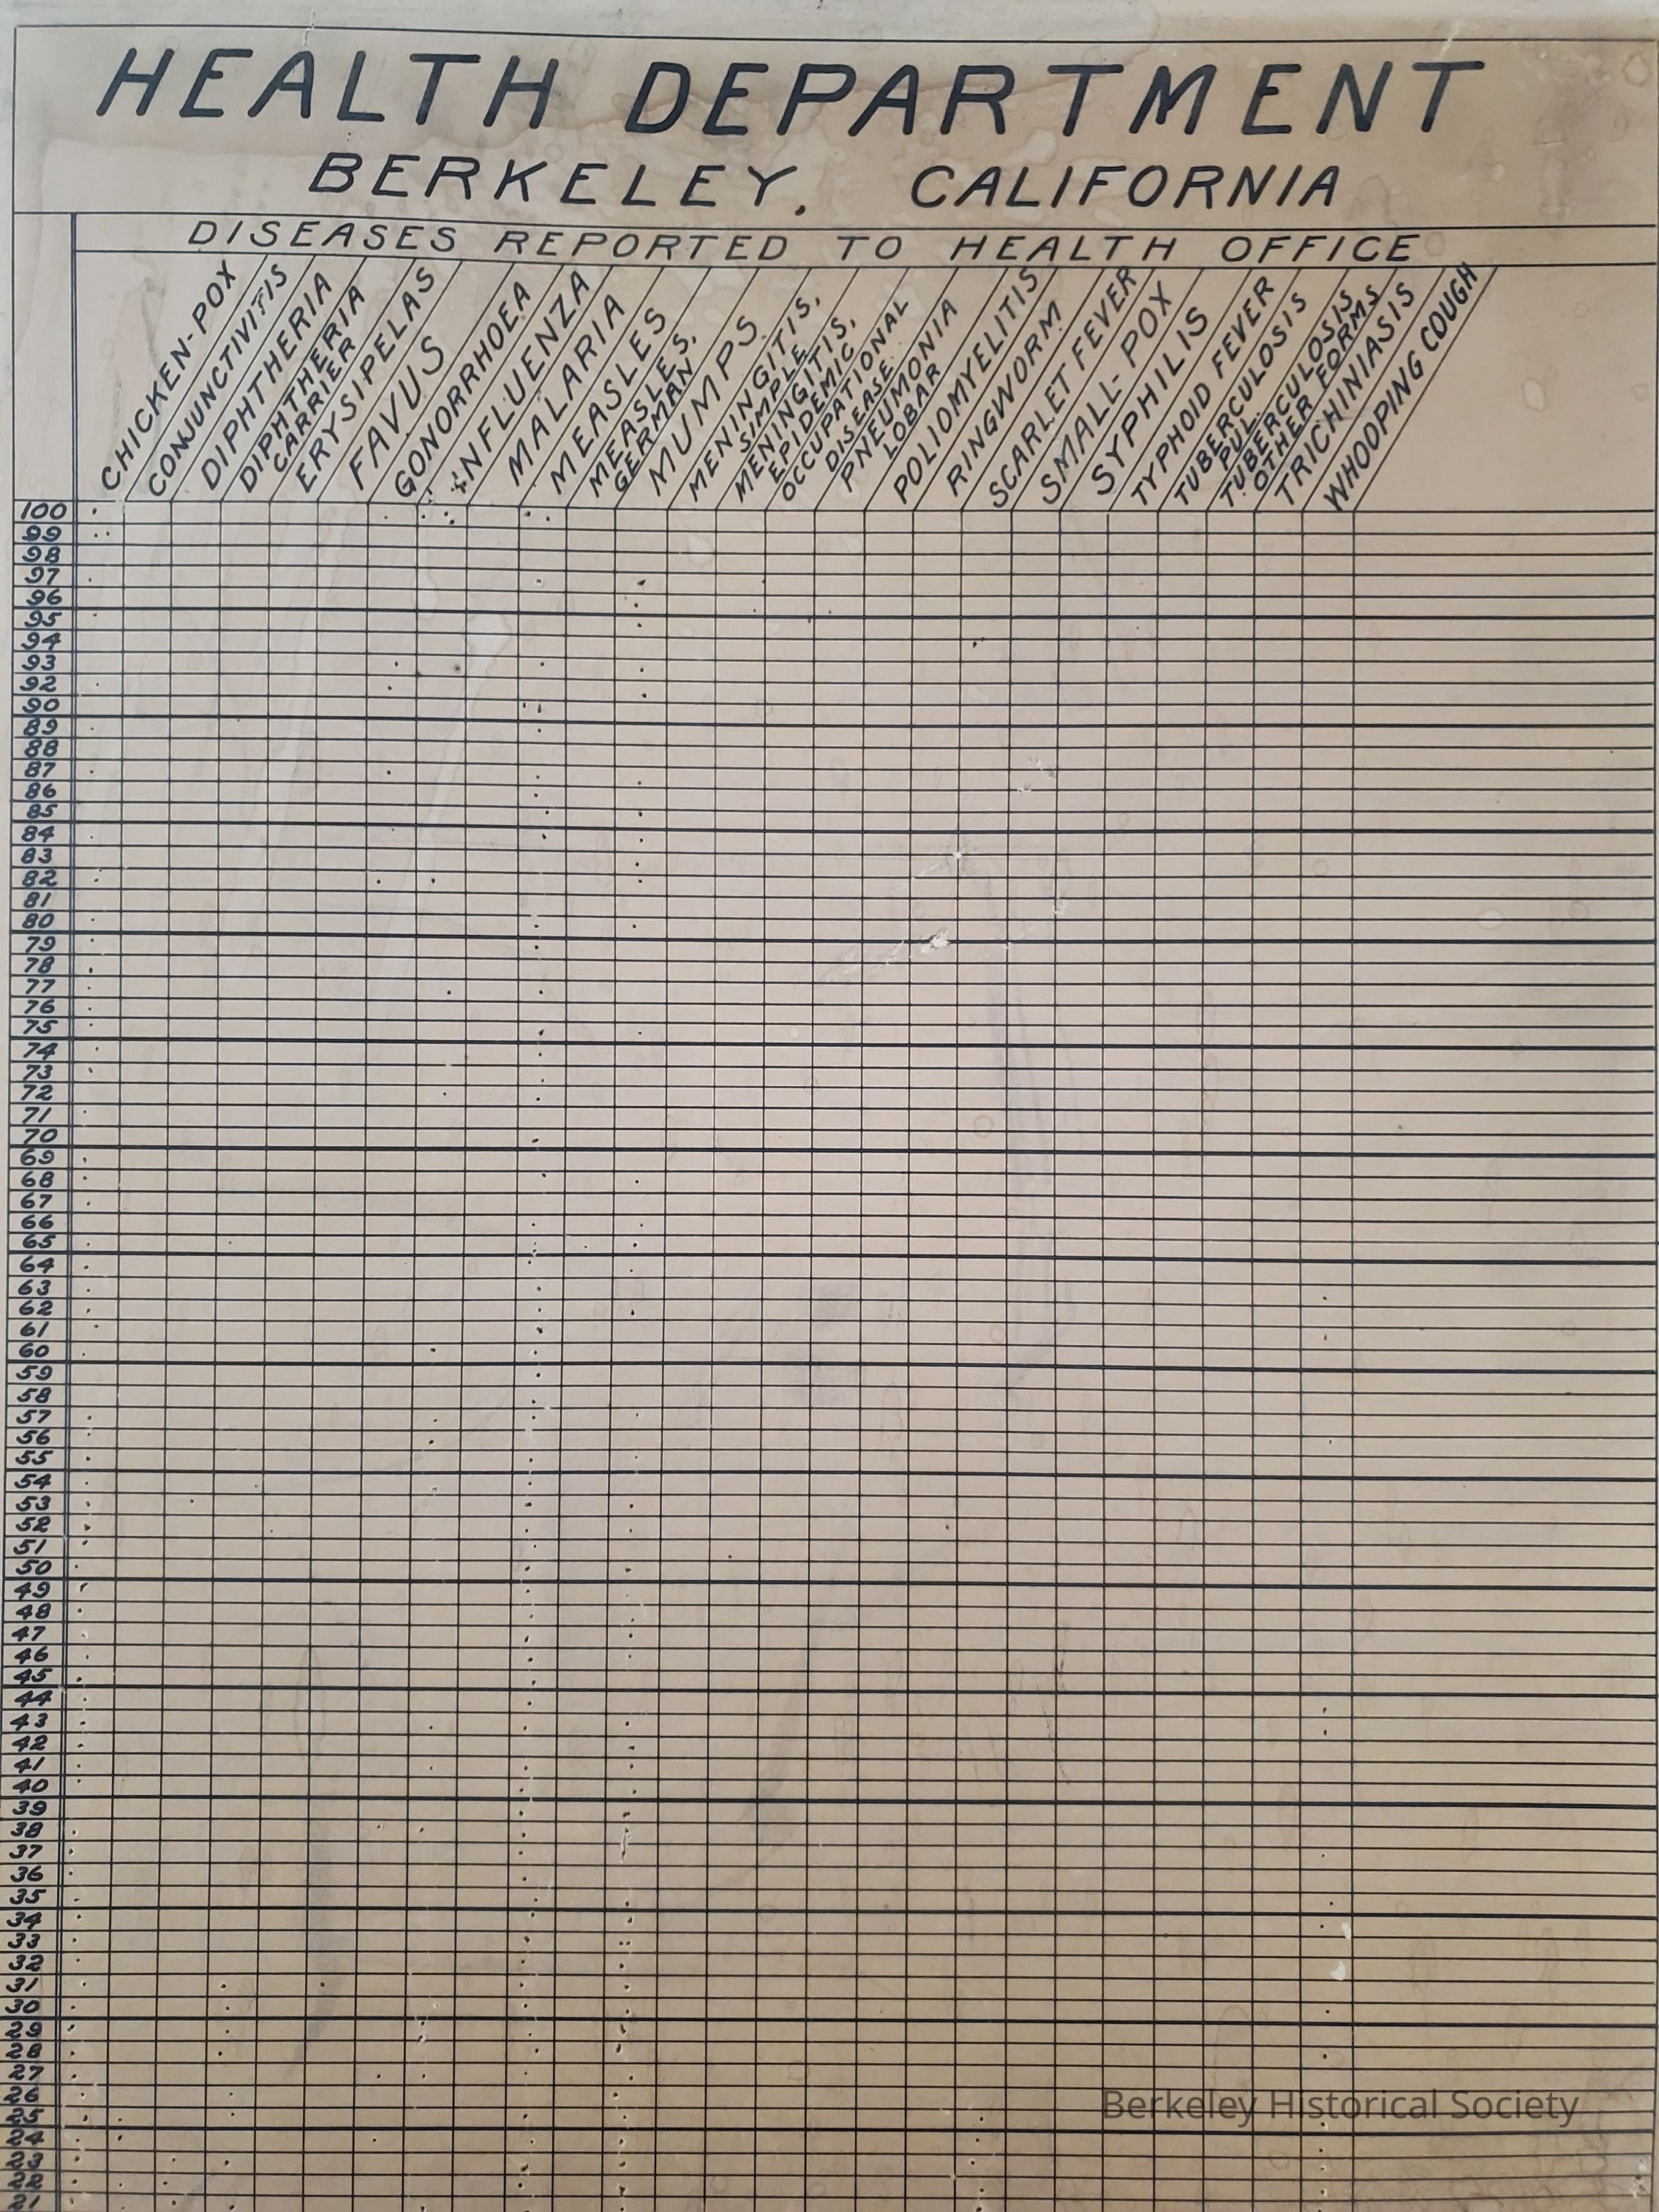 HEALTH DEPARTMENT
BERKELEY, CALIFORNIA
DISEASES REPORTED TO HEALTH OFFICE
CHICKEN-POX
CONJUNCTIVITIS
DIPHTHERIA
DIPHTHERIA
CARRIER
ERYSIPELAS
FAVUS
GONORRHOEA
INFLUENZA
MALARIA
MEASLES
MEASLES,
GERMAN
MUMPS
MENINGITIS,
SIMPLE
MENINGITIS,
EPIDEMIC
OCCUPATIONAL
DISEASE
PNEUMONIA
LOBAR
POLIOMYELITIS
RINGWORM
SCARLET FEVER
SMALL-POX
SYPHILIS
TYPHOID FEVER
TUBERCULOSIS
PUL.
TUBERCULOSIS
OTHER FORMS
TRICHINIASIS
WHOOPING COUGH
100
99
98
97
96
95
94
93
92
90
89
88
87
86
85
84
83
82
81
80
79
78
77
76
75
74
73
72
71
70
69
68
67
66
65
64
63
62
61
60
59
58
57
56
55
54
53
52
51
50
49
48
47
46
45
44
43
42
41
40
39
38
37
36
35
34
33
32
31
30
29
28
27
26
25
24
23
22
21
Berkeley Historical Society